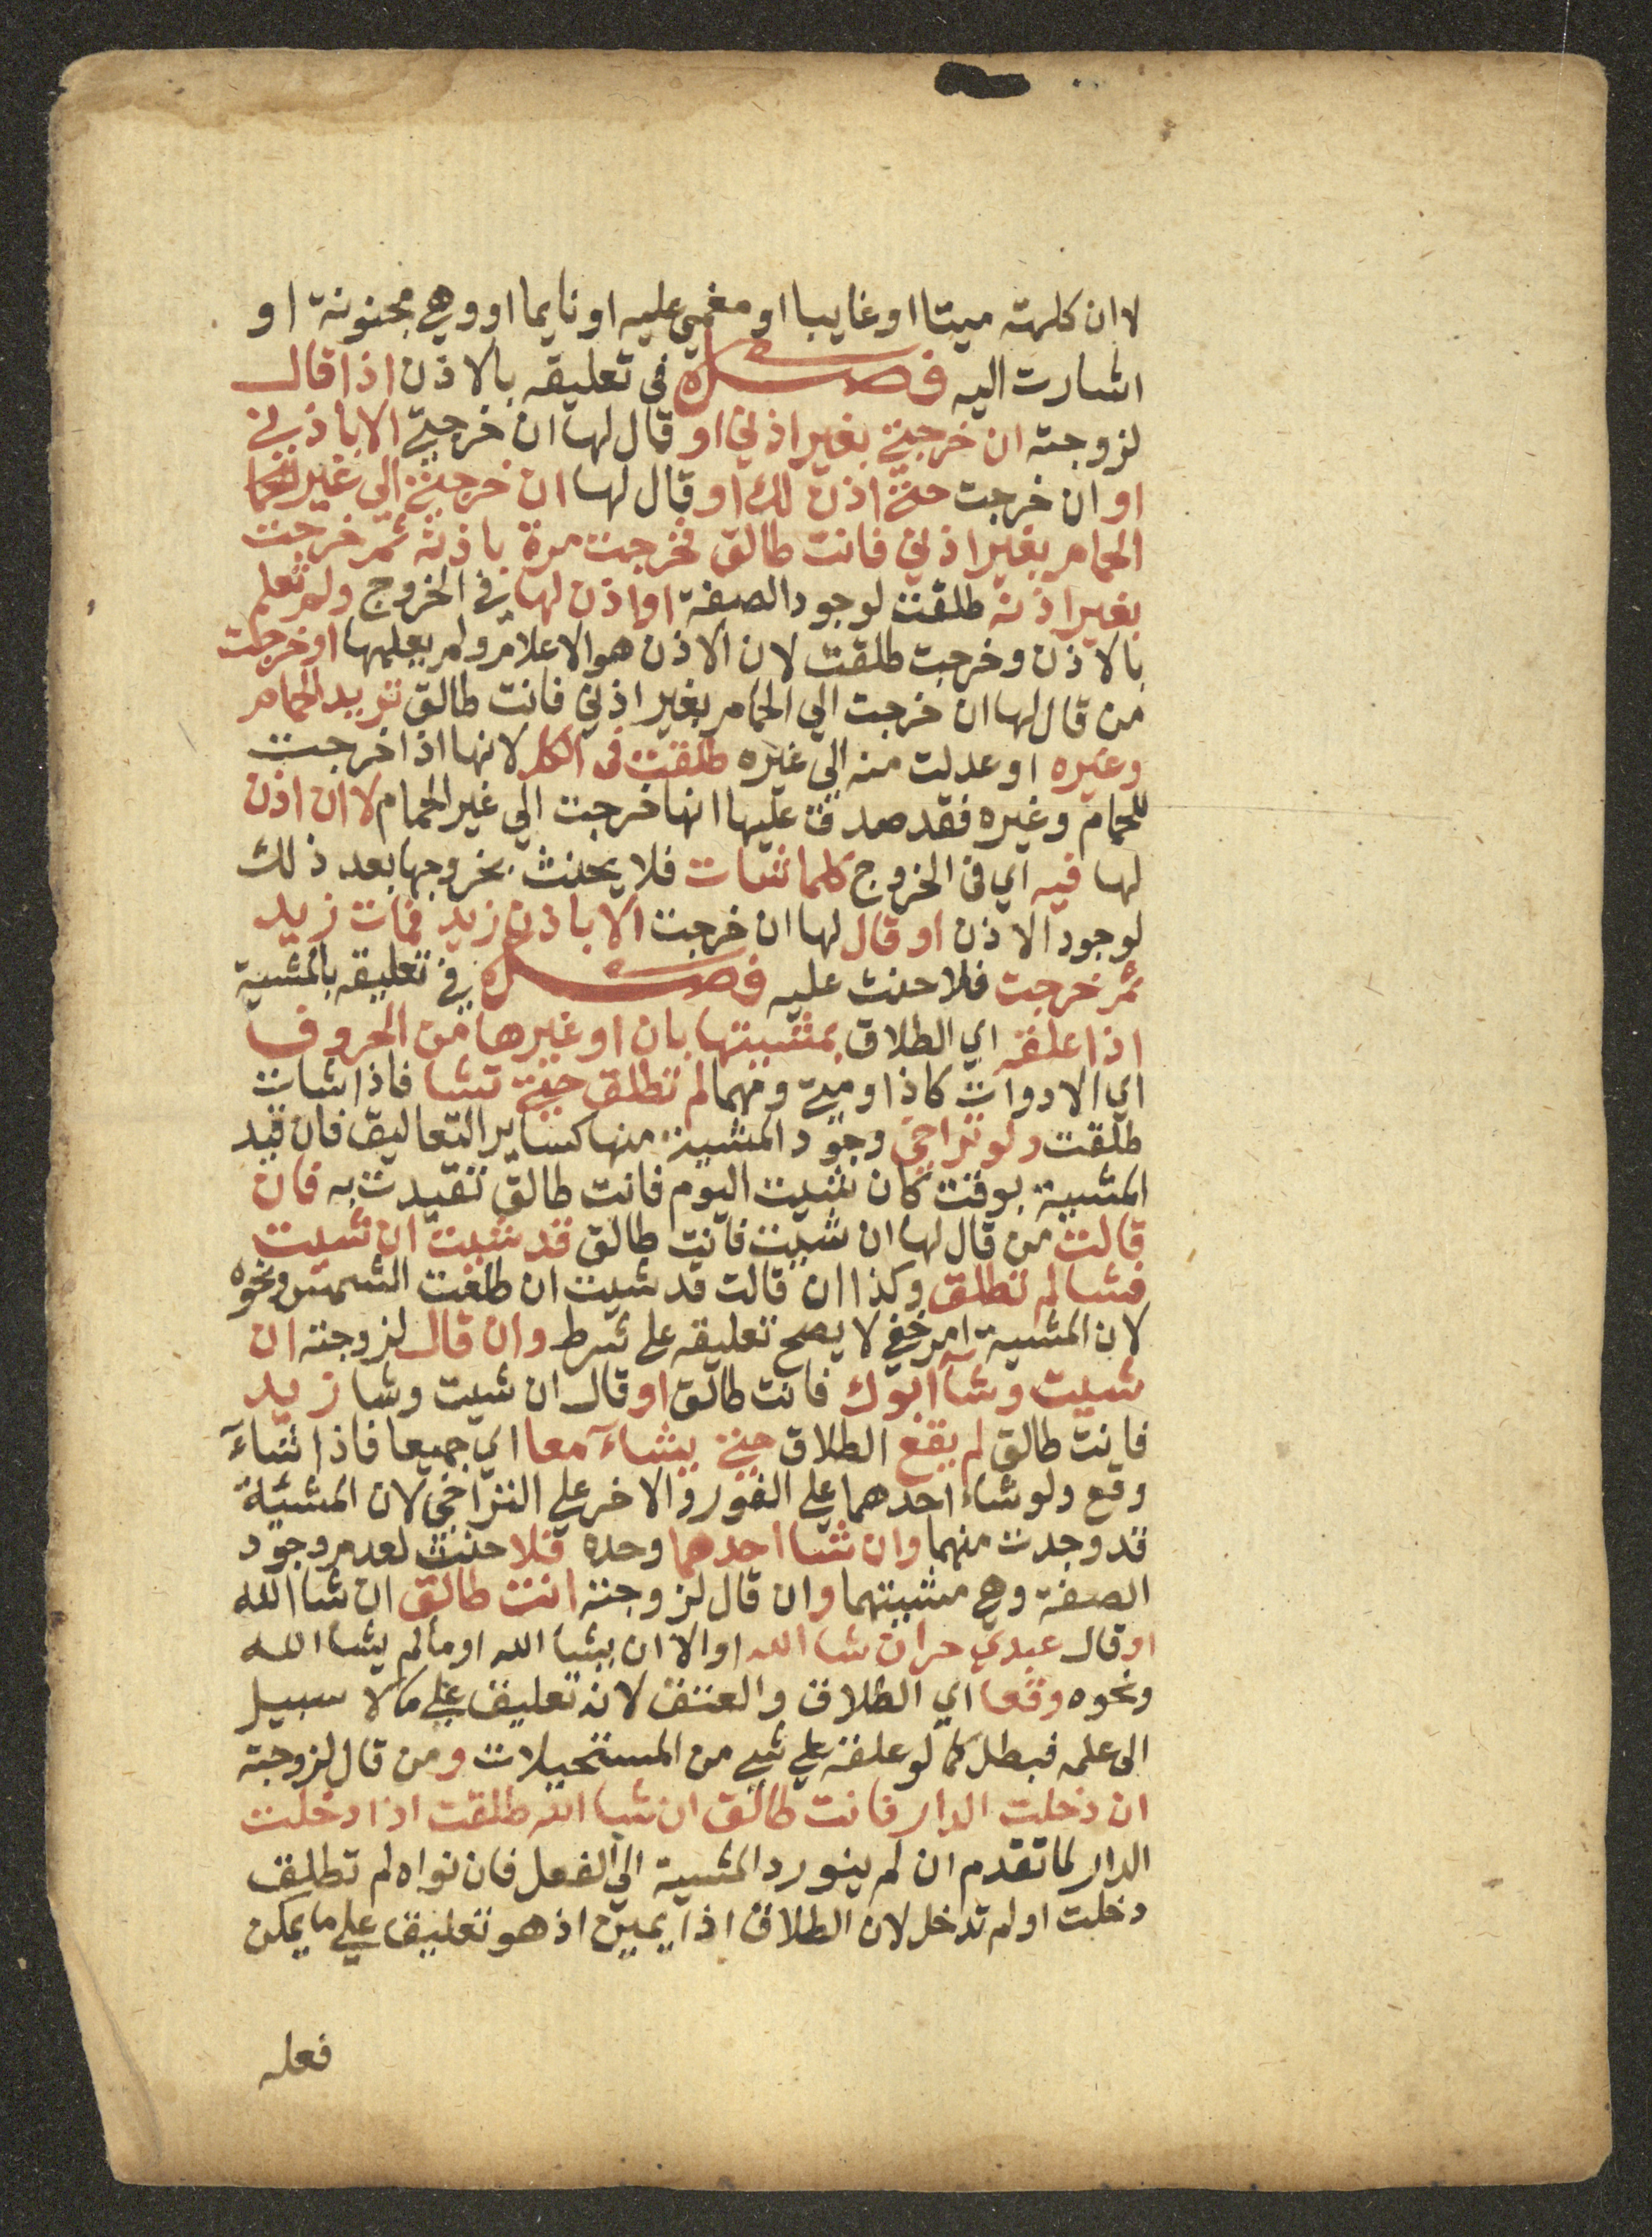 لا ان كلمته ميتا او غايبا او مغمي عليه او نايما او وهي مجنونة او
اشارت اليه فصل في تعليقه بالاذن اذا قال
لزوجته ان خرجتي بغير اذني او قال لها ان خرجتي الا باذني
او ان خرجت حتي اذن لك او قال لها ان خرجتي الي غير
الحمام بغير اذني فانت طالق فخرجت مرة باذنه ثم خرجت
بغير اذنه طلقت لوجود الصفة او اذن لها في الخروج ولم تعلم
بالاذن وخرجت طلقت لان الاذن هو الاعلام ولم يعلمها او خرجت
من قال لها ان خرجت الي الحمام بغير اذني فانت طالق تريد الحمام
وغيره او عدلت منه الي غيره طلقت في الكل لانها اذا خرجت
للحمام وغيره فقد صدق عليها انها خرجت الي غير الحمام لا ان اذن
لها فيه اي في الخروج كلما شات فلا يحنث بخروجها بعد ذلك
لوجود الاذن او قال لها ان خرجت الا باذن زيد فمات زيد
ثم خرجت فلا حنث عليه فصل في تعليقه بالمشية
اذا علقه اي الطلاق بمشيتها بان او غيرها من الحروف
اي الادوات كاذا ومتي ومهما لم تطلق حتي تشا فاذا شات
طلقت ولو تراخي وجود المشية منها كساير التعاليق فان قيد
المشية بوقت كان شيت اليوم فانت طالق تقيدت به فان
قالت من قال لها ان شيت فانت طالق قد شيت ان شيت
فشا لم تطلق وكذا ان قالت قد شيت ان طلعت الشمس ونحوه
لان المشية امر خفي لا يصح تعليقه علي شرط وان قال لزوجته ان
شيت وشا ابوك فانت طالق او قال ان شيت وشا زيد
فانت طالق لم يقع الطلاق حتي يشاء معا اي جميعا فاذا شاء
وقع ولو شاء احدهما علي الفور والاخر علي التراخي لان المشية
قد وجدت منهما وان شا احدهما وحده فلا حنث لعدم وجود
الصفة وهي مشيتهما وان قال لزوجته انت طالق ان شا الله
او قال عبدي حر ان شا الله او الا ان يشا الله او ما لم يشا الله
ونحوه وقعا اي الطلاق والعتق لانه تعليق علي ما لا سبيل
الي علمه فبطل كما لو علقه علي شي من المستحيلات ومن قال لزوجته
ان دخلت الدار فانت طالق ان شا الله طلقت اذا دخلت
الدار لما تقدم ان لم ينو رد المشية الي الفعل فان نواه لم تطلق
دخلت او لم تدخل لان الطلاق اذا يمين اذ هو تعليق علي ما يمكن
فعله